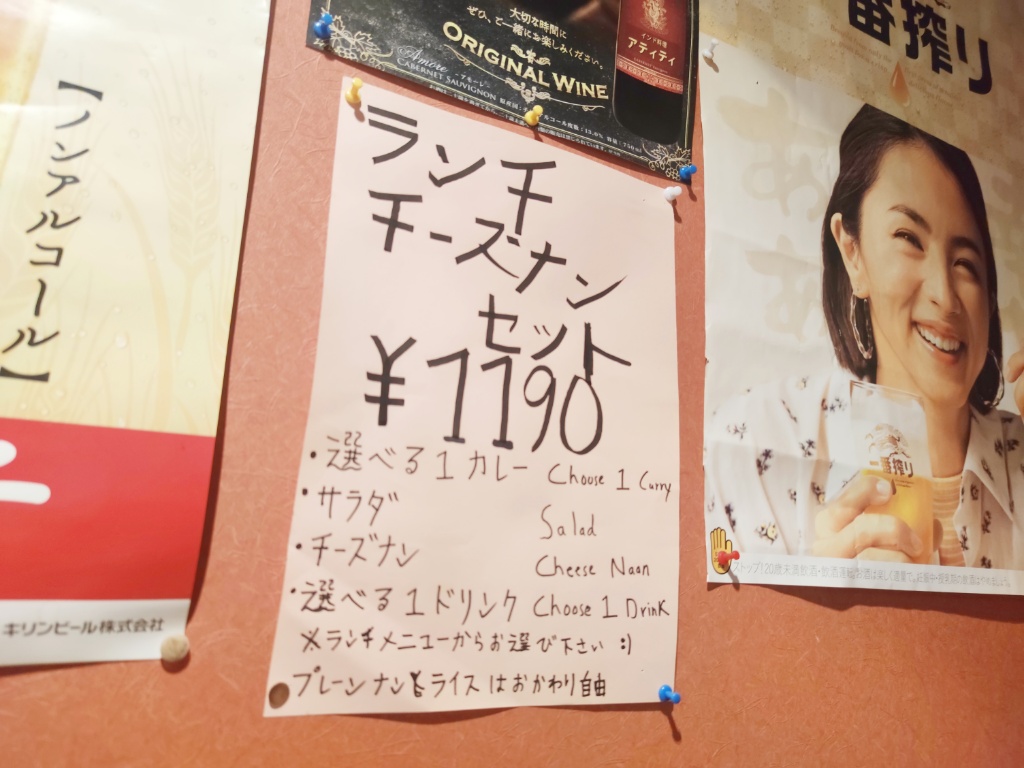 【ノンアルコール】
キリンビール株式会社
大切な時間に
ぜひ、ご一緒にお楽しみください。
ORIGINAL WINE
Amore
CABERNET SAUVIGNON
インド料理
アティティ
ランチ
チーズナン
セット
¥1190
・選べる1カレー Choose 1 Curry
・サラダ Salad
・チーズナン Cheese Naan
・選べる1ドリンク Choose 1 Drink
※ランチメニューからお選び下さい :)
プレーンナンとライスはおかわり自由
一番搾り
一番搾り